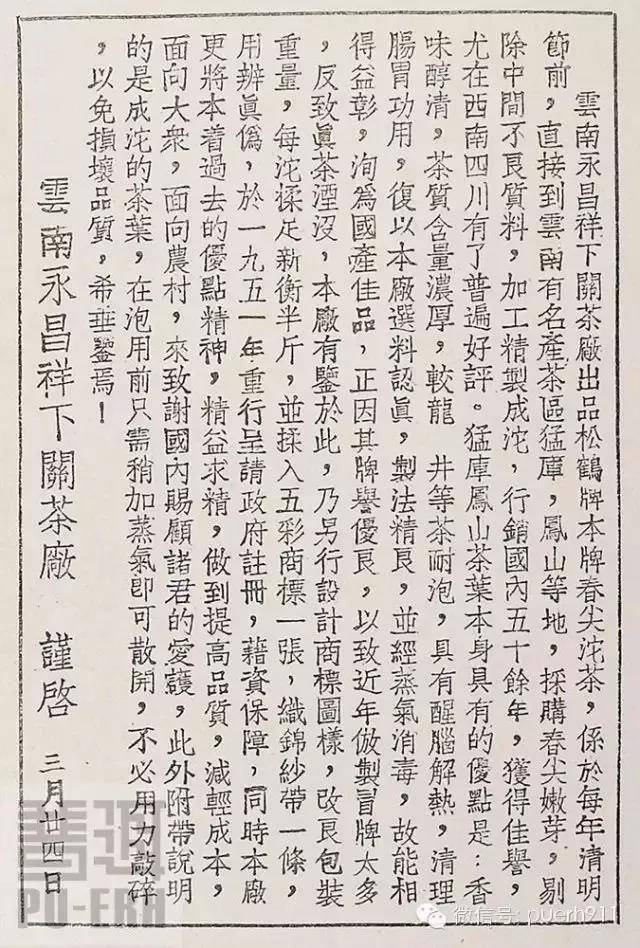 雲南永昌祥下關茶廠出品松鶴牌本牌春尖沱茶，係於每年清明
節前，直接到雲南有名產茶區猛庫，鳳山等地，採購春尖嫩芽，剔
除中間不良質料，加工精製成沱，行銷國內五十餘年，獲得佳譽，
尤在西南四川有了普遍好評。猛庫鳳山茶葉本身具有的優點是：香
味醇清，茶質含量濃厚，較龍　井等茶耐泡，具有醒腦解熱，清理
腸胃功用，復以本廠選料認眞，製法精良，並經蒸氣消毒，故能相
得益彰，洵爲國產佳品，正因其牌譽優良，以致近年倣製冒牌太多
，反致眞茶湮沒，本廠有鑒於此，乃另行設計商標圖樣，改良包裝
重量，每沱揉足新衡半斤，並揉入五彩商標一張，織錦紗帶一條，
用辨眞僞，於一九五一年重行呈請政府註冊，藉資保障，同時本廠
更將本着過去的優點精神，精益求精，做到提高品質，減輕成本，
面向大衆，面向農村，來致謝國內賜顧諸君的愛護，此外附帶說明
的是成沱的茶葉，在泡用前只需稍加蒸氣卽可散開，不必用力敲碎
，以免損壞品質，希垂鑒焉！
雲南永昌祥下關茶廠　謹啓　三月廿四日
普洱
PU-ERH
微信号: puerh911